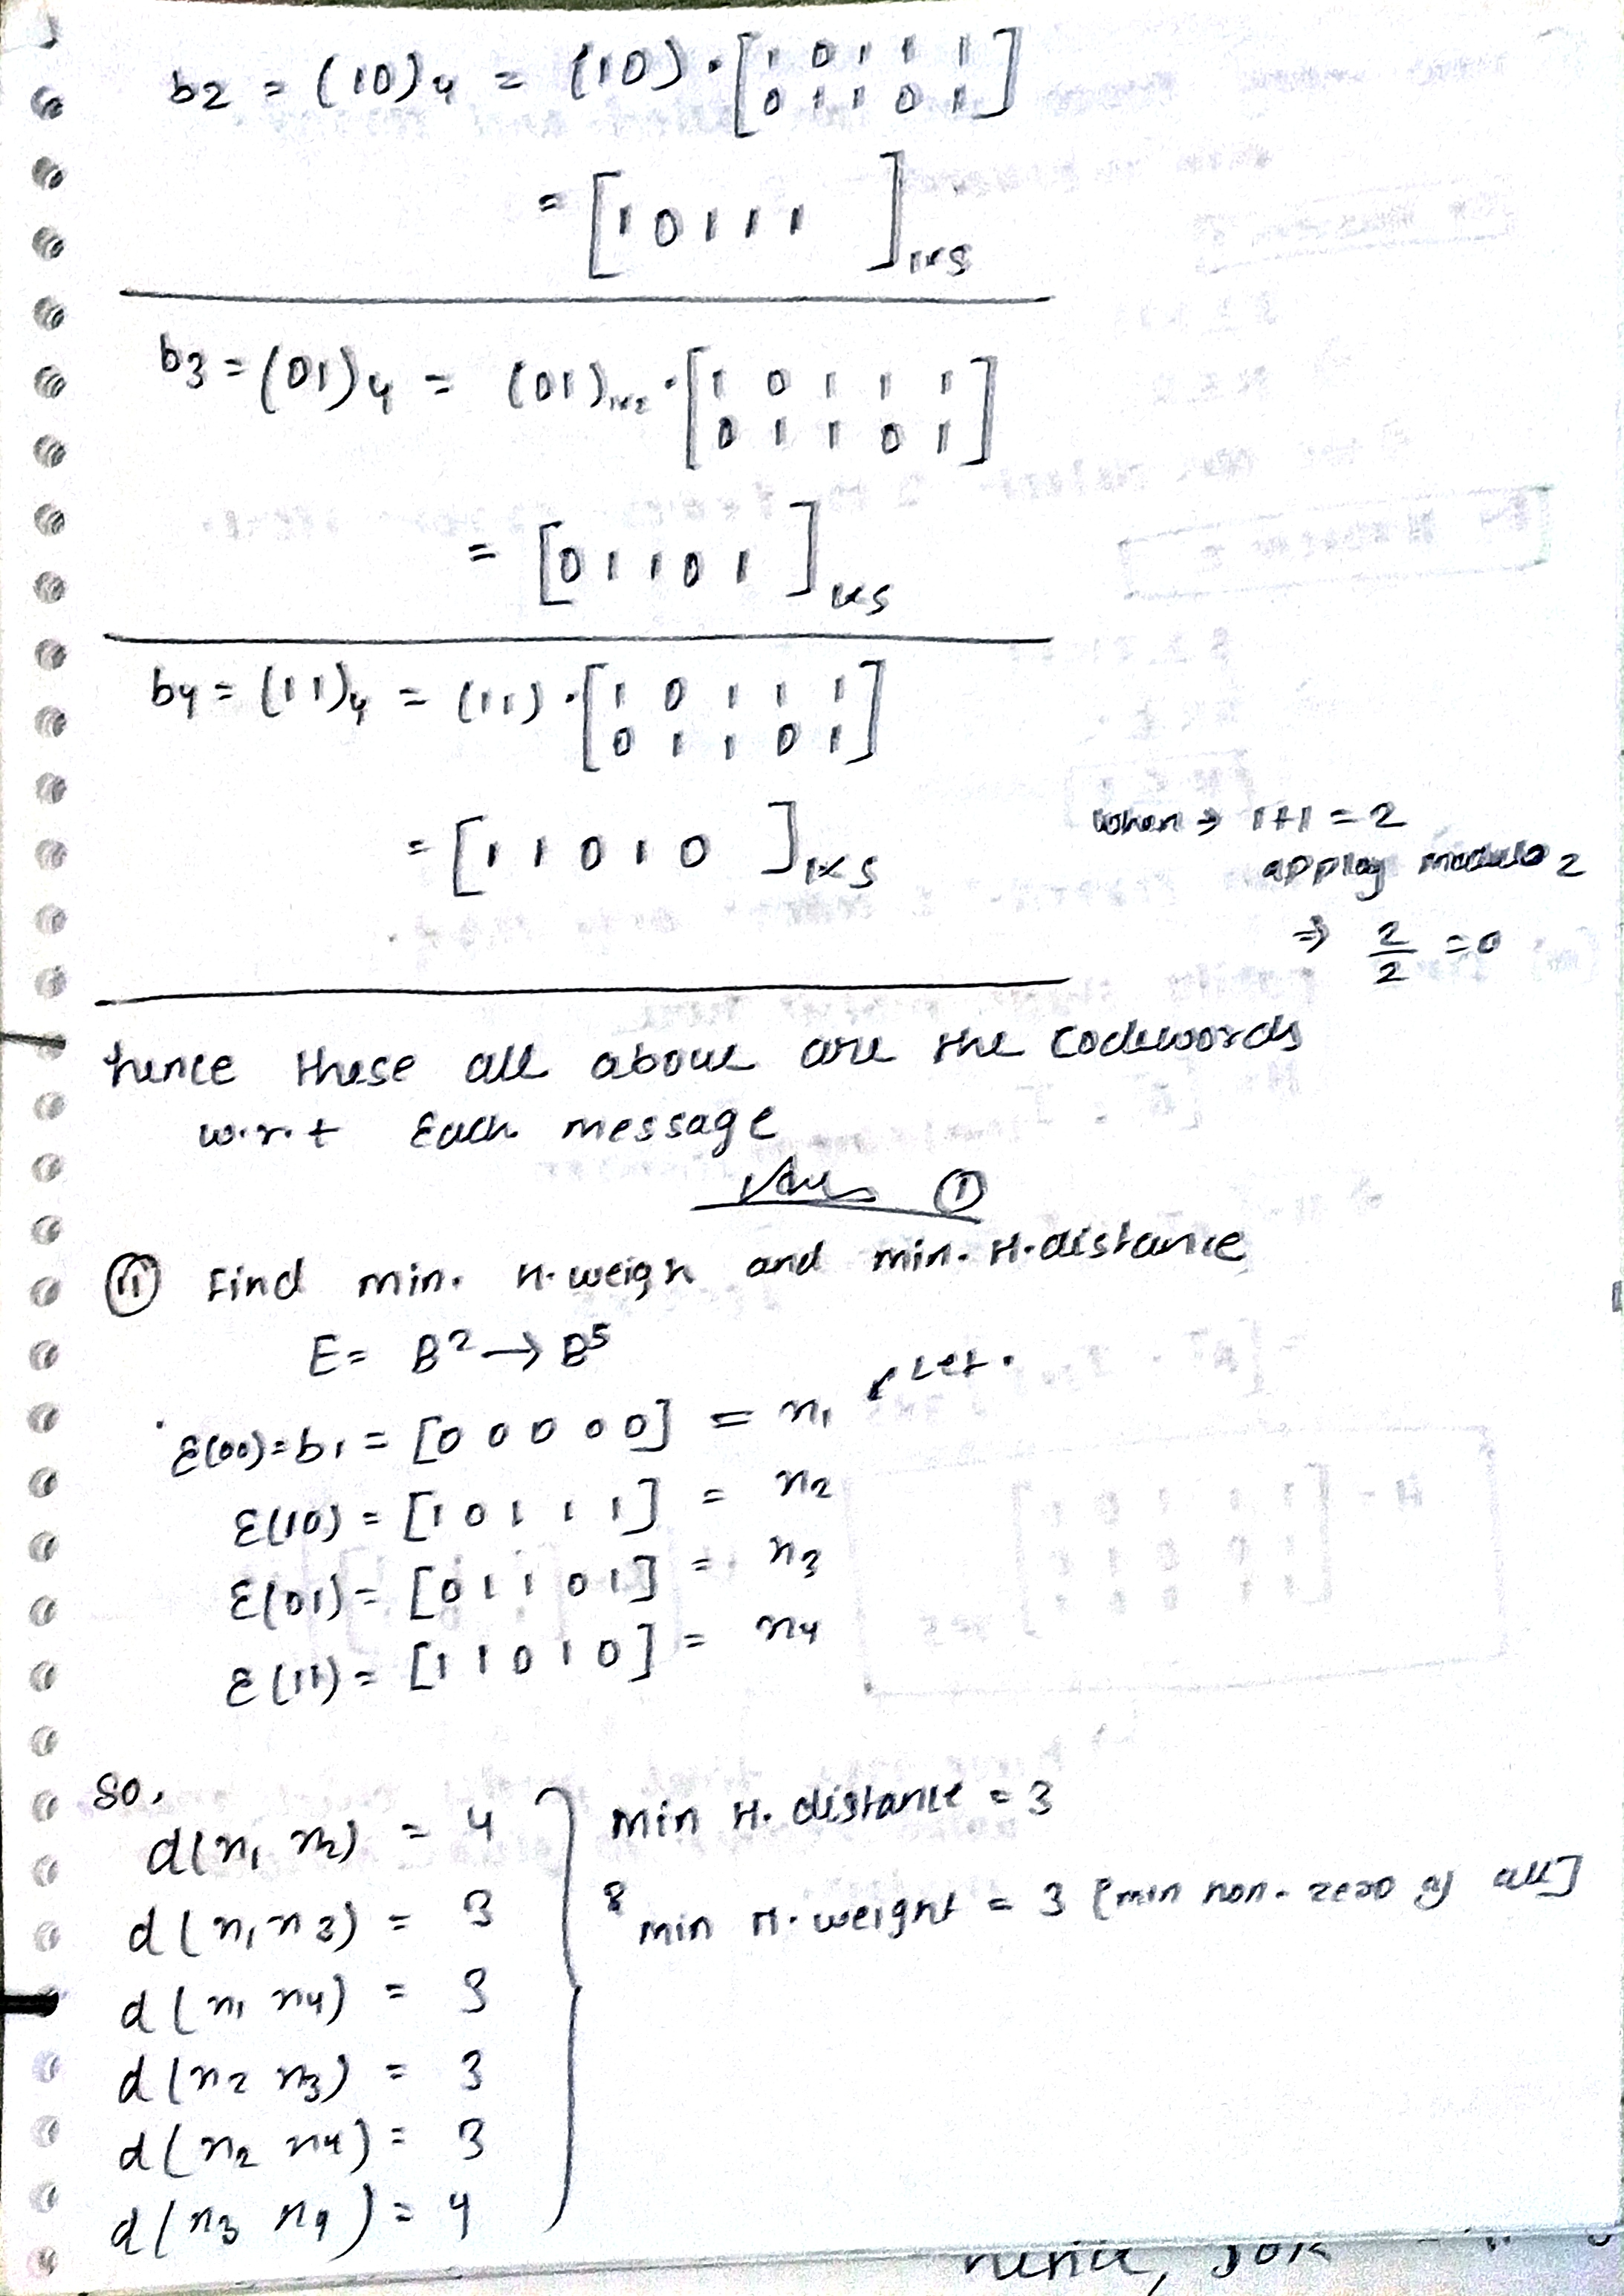 b2 = (10)4 = (10) · [1 0 1 1 1
0 1 1 0 1]
= [1 0 1 1 1 ]1x5
b3 = (01)4 = (01)1x2 · [1 0 1 1 1
0 1 1 0 1]
= [0 1 1 0 1 ]1x5
b4 = (11)4 = (11) · [1 0 1 1 1
0 1 1 0 1]
= [1 1 0 1 0 ]1x5
when → 1+1 = 2
applay modulo 2
⇒ 2/2 = 0
hence these all above are the codewords
w.r.t Each message
Ans ①
ⓘⓘ Find min. H. weigh and min. H. distance
E = B² → B⁵
↙ Let.
E(00) = b1 = [0 0 0 0 0] = n1
E(10) = [1 0 1 1 1] = n2
E(01) = [0 1 1 0 1] = n3
E(11) = [1 1 0 1 0] = n4
So,
d(n1 n2) = 4
d(n1 n3) = 3
d(n1 n4) = 3
d(n2 n3) = 3
d(n2 n4) = 3
d(n3 n4) = 4
Min H. distance = 3
&
min H. weight = 3 [min non-zero of all]
hence,